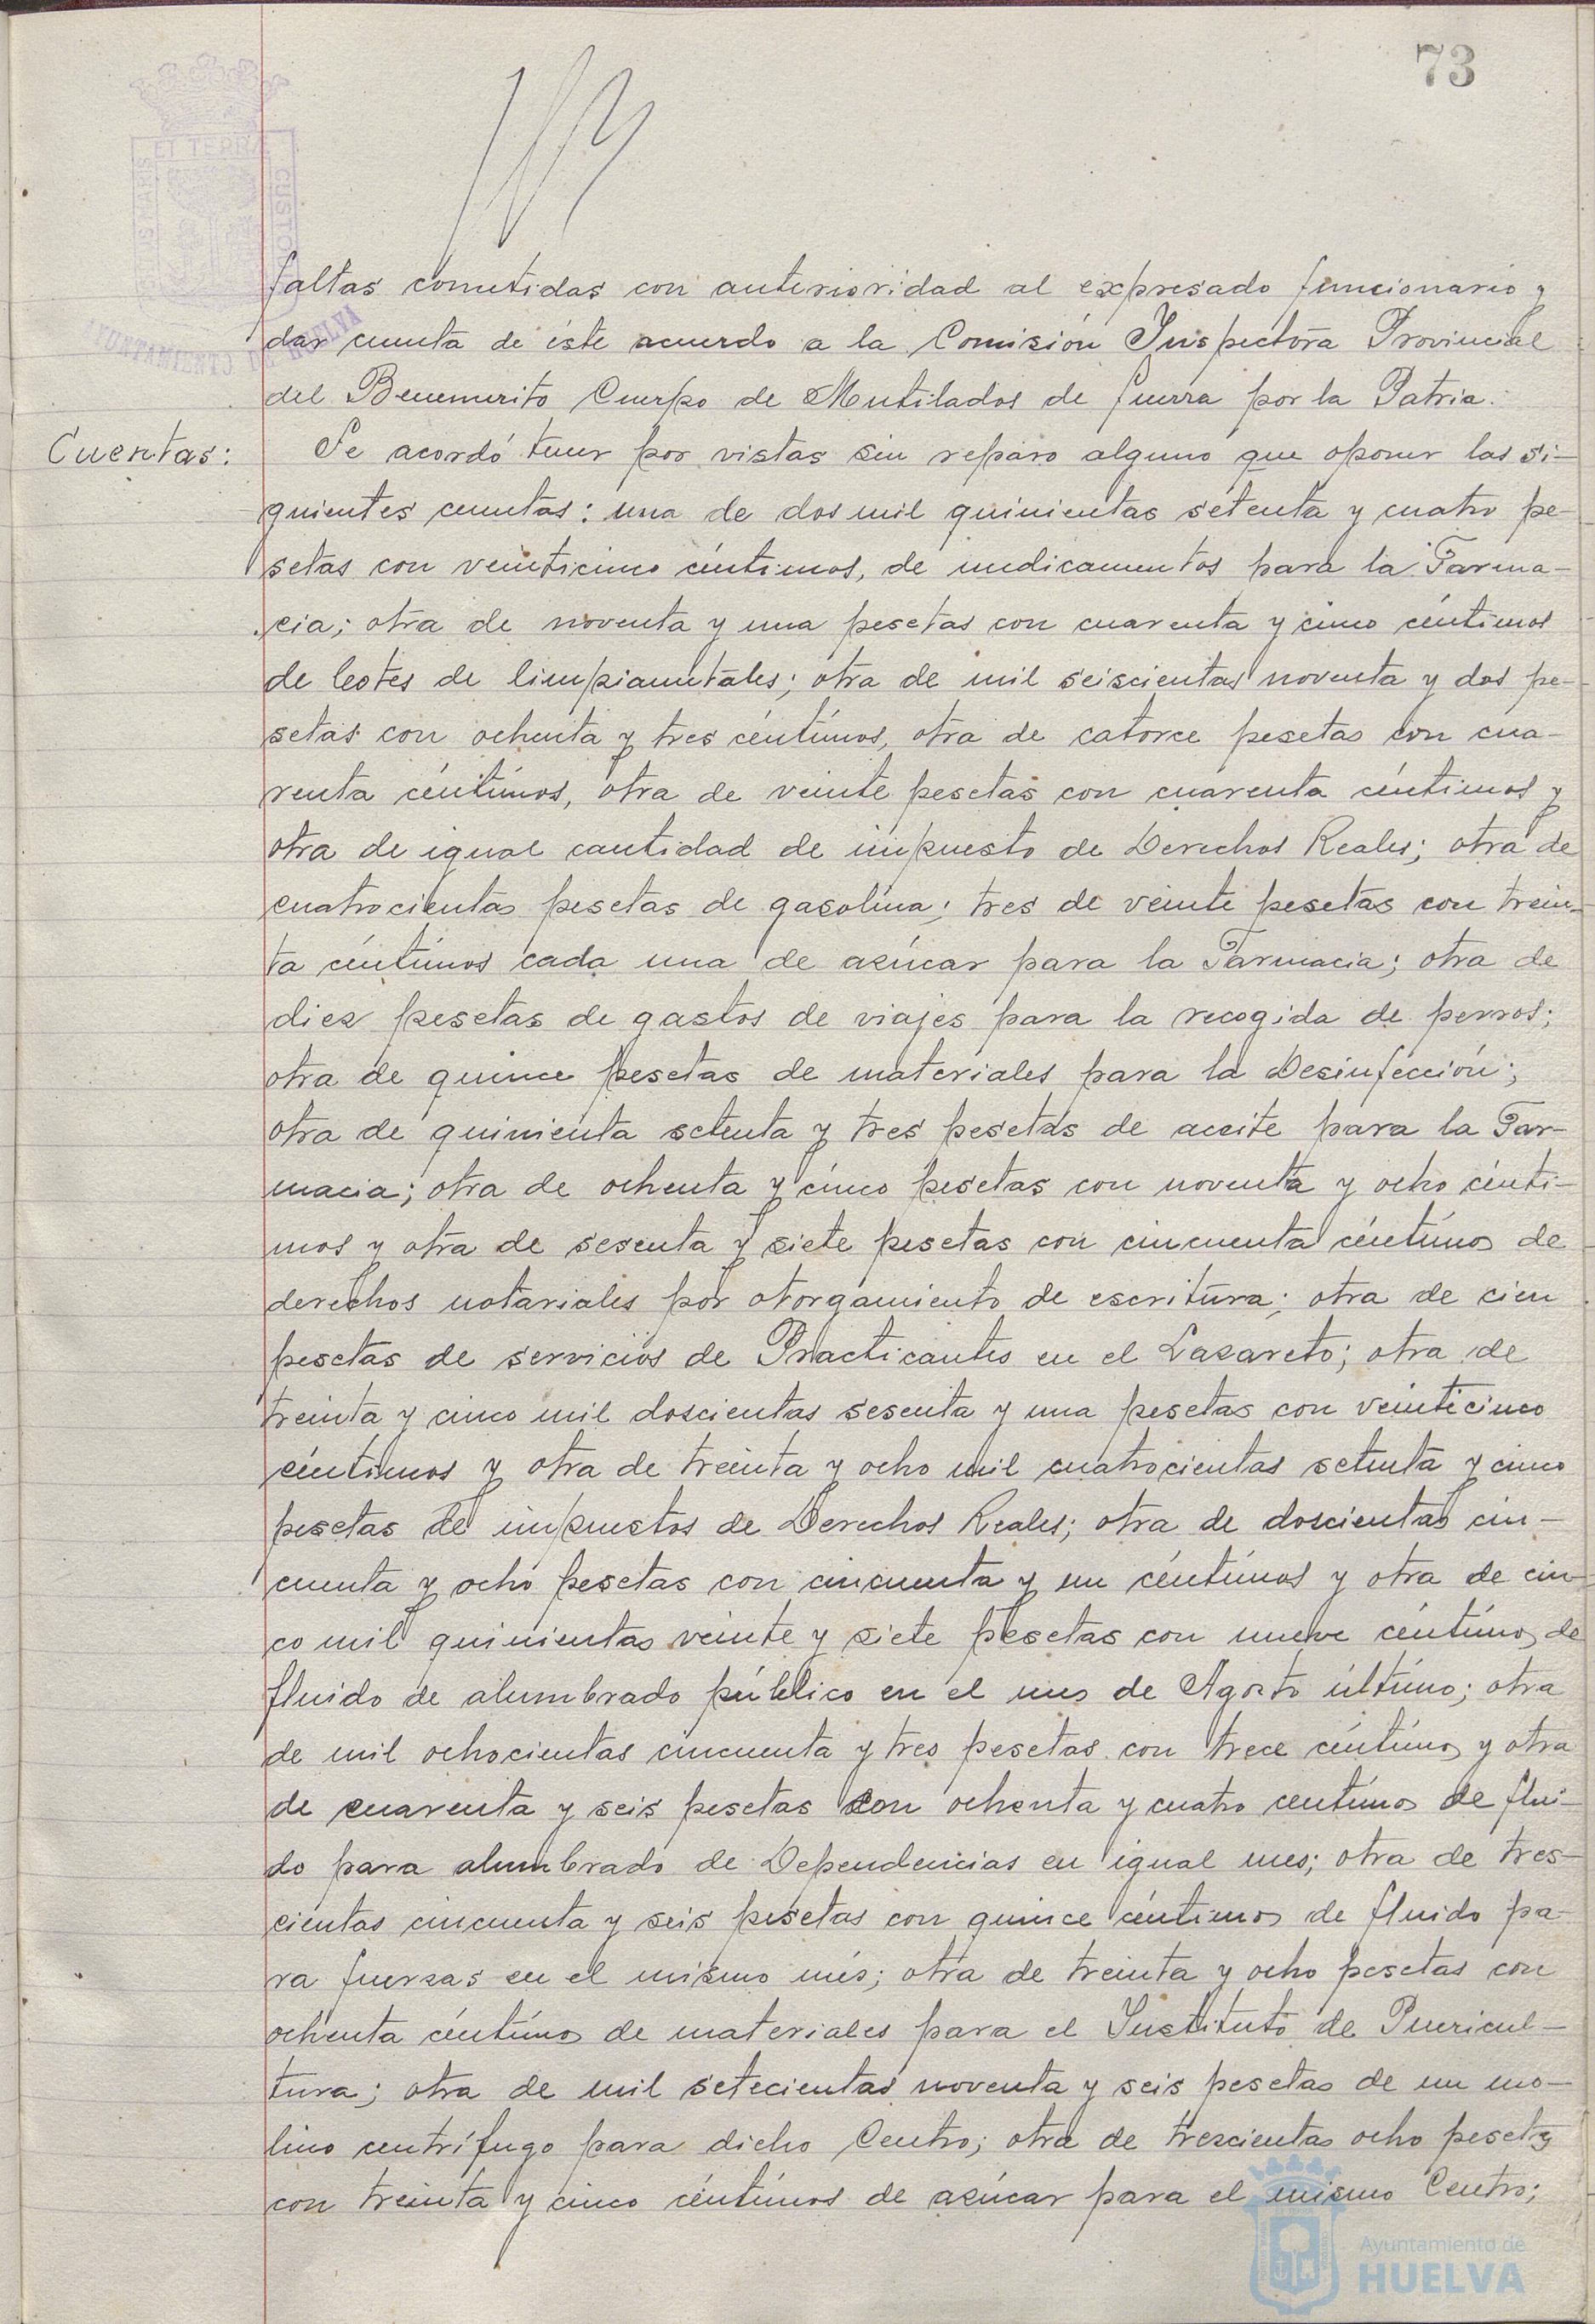 73
ET TERRÆ
CUSTO
AYUNTAMIENTO DE HUELVA
faltas cometidas con anterioridad al expresado funcionario y
dar cuenta de éste acuerdo a la Comisión Inspectora Provincial
del Benemerito Cuerpo de Mutilados de Guerra por la Patria.
Cuentas: Se acordó tener por vistas sin reparo alguno que oponer las si-
guientes cuentas: una de dos mil quinientas setenta y cuatro pe-
setas con veinticinco céntimos, de medicamentos para la Farma-
cia; otra de noventa y una pesetas con cuarenta y cinco céntimos
de botes de limpiametales; otra de mil seiscientas noventa y dos pe-
setas con ochenta y tres céntimos, otra de catorce pesetas con cua-
renta céntimos, otra de veinte pesetas con cuarenta céntimos y
otra de igual cantidad de impuesto de Derechos Reales; otra de
cuatrocientas pesetas de gasolina; tres de veinte pesetas con trein-
ta céntimos cada una de azúcar para la Farmacia; otra de
diez pesetas de gastos de viajes para la recogida de perros;
otra de quince pesetas de materiales para la Desinfección;
otra de quinienta setenta y tres pesetas de aceite para la Far-
macia; otra de ochenta y cinco pesetas con noventa y ocho cénti-
mos y otra de sesenta y siete pesetas con cincuenta céntimos de
derechos notariales por otorgamiento de escritura; otra de cien
pesetas de servicios de Practicantes en el Lazareto; otra de
treinta y cinco mil doscientas sesenta y una pesetas con veinticinco
céntimos y otra de treinta y ocho mil cuatrocientas setenta y cinco
pesetas de impuestos de Derechos Reales; otra de doscientas cin-
cuenta y ocho pesetas con cincuenta y un céntimos y otra de cin-
co mil quinientas veinte y siete pesetas con nueve céntimos de
fluido de alumbrado público en el mes de Agosto último; otra
de mil ochocientas cincuenta y tres pesetas con trece céntimos y otra
de cuarenta y seis pesetas con ochenta y cuatro centimos de flui-
do para alumbrado de Dependencias en igual mes; otra de tres-
cientas cincuenta y seis pesetas con quince céntimos de fluido pa-
ra fuerzas en el mismo més; otra de treinta y ocho pesetas con
ochenta céntimos de materiales para el Instituto de Puericul-
tura; otra de mil setecientas noventa y seis pesetas de un mo-
lino centrífugo para dicho Centro; otra de trescientas ocho pesetas
con treinta y cinco céntimos de azúcar para el mismo Centro;
Ayuntamiento de
HUELVA